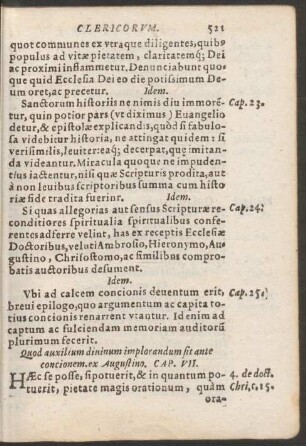 CLERICORVM. 521
quot communes ex vtraque diligentes, quibꝰ
populus ad vitæ pietatem, claritatemq; Dei
ac proximi inflammetur. Denunciabunt quo-
que quid Ecclesia Dei eo die potissimum De-
um oret, ac precetur. Idem.
Sanctorum historiis ne nimis diu immorē- Cap. 23.
tur, quin potior pars (vt diximus) Euangelio
detur, & epistolæ explicandis, quòd si fabulo-
sa videbitur historia, ne attingat quidem: si
verisimilis, leuiter: eaq; decerpat, quę imitan-
da videantur. Miracula quoque ne impuden-
tius iactentur, nisi quæ Scripturis prodita, aut
à non leuibus scriptoribus summa cum histo
riæ fide tradita fuerint. Idem.
Si quas allegorias aut sensus Scripturæ re- Cap. 24.
conditiores spiritualia spiritualibus confe-
rentes adferre velint, has ex receptis Ecclesiæ
Doctoribus, veluti Ambrosio, Hieronymo, Au-
gustino, Chrisostomo, ac similibus compro-
batis auctoribus desument.
Idem.
Vbi ad calcem concionis deuentum erit, Cap. 25.
breui epilogo, quo argumentum ac capita to
tius concionis renarrent vtantur. Id enim ad
captum ac fulciendam memoriam auditorū
plurimum fecerit.
Quod auxilium diuinum implorandum sit ante
concionem. ex Augustino. CAP. VII.
HÆc se posse, si potuerit, & in quantum po- 4. de doct.
tuerit, pietate magis orationum, quàm Chri. c. 15.
ora-